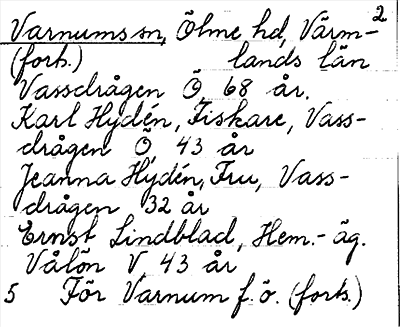 2
Varnums sn, Ölme hd, Värm-
(forts.) lands län
Vassdrågen Ö, 68 år.
Karl Hydén, Fiskare, Vass-
drågen Ö 43 år
Jeanna Hydén, Fru, Vass-
drågen 32 år
Ernst Lindblad, Hem.-äg.
Vålön V, 43 år
5 För Varnum f. ö. (forts.)